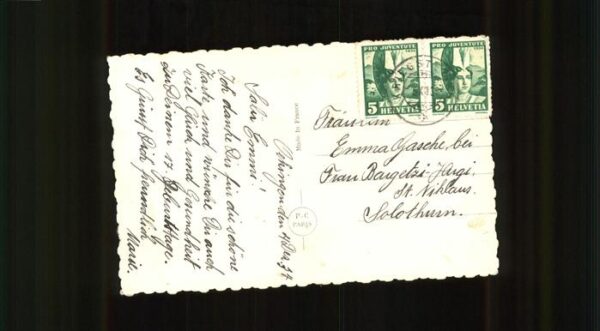 den 4. Dez. 34
Salu Emmi!
Ich danke Dir für die schöne
Karte und wünsche Dir auch
viel Glück und Gesundheit
zu Deinem Geburtstage.
Es grüsst Dich freundlich
Marie.
Made in France
P.-C
PARIS
PRO JUVENTUTE
5 HELVETIA
PRO JUVENTUTE
5 HELVETIA
Fräulein
Emma Gasche, bei
Frau Bargetzi-
St. Niklaus.
Solothurn.